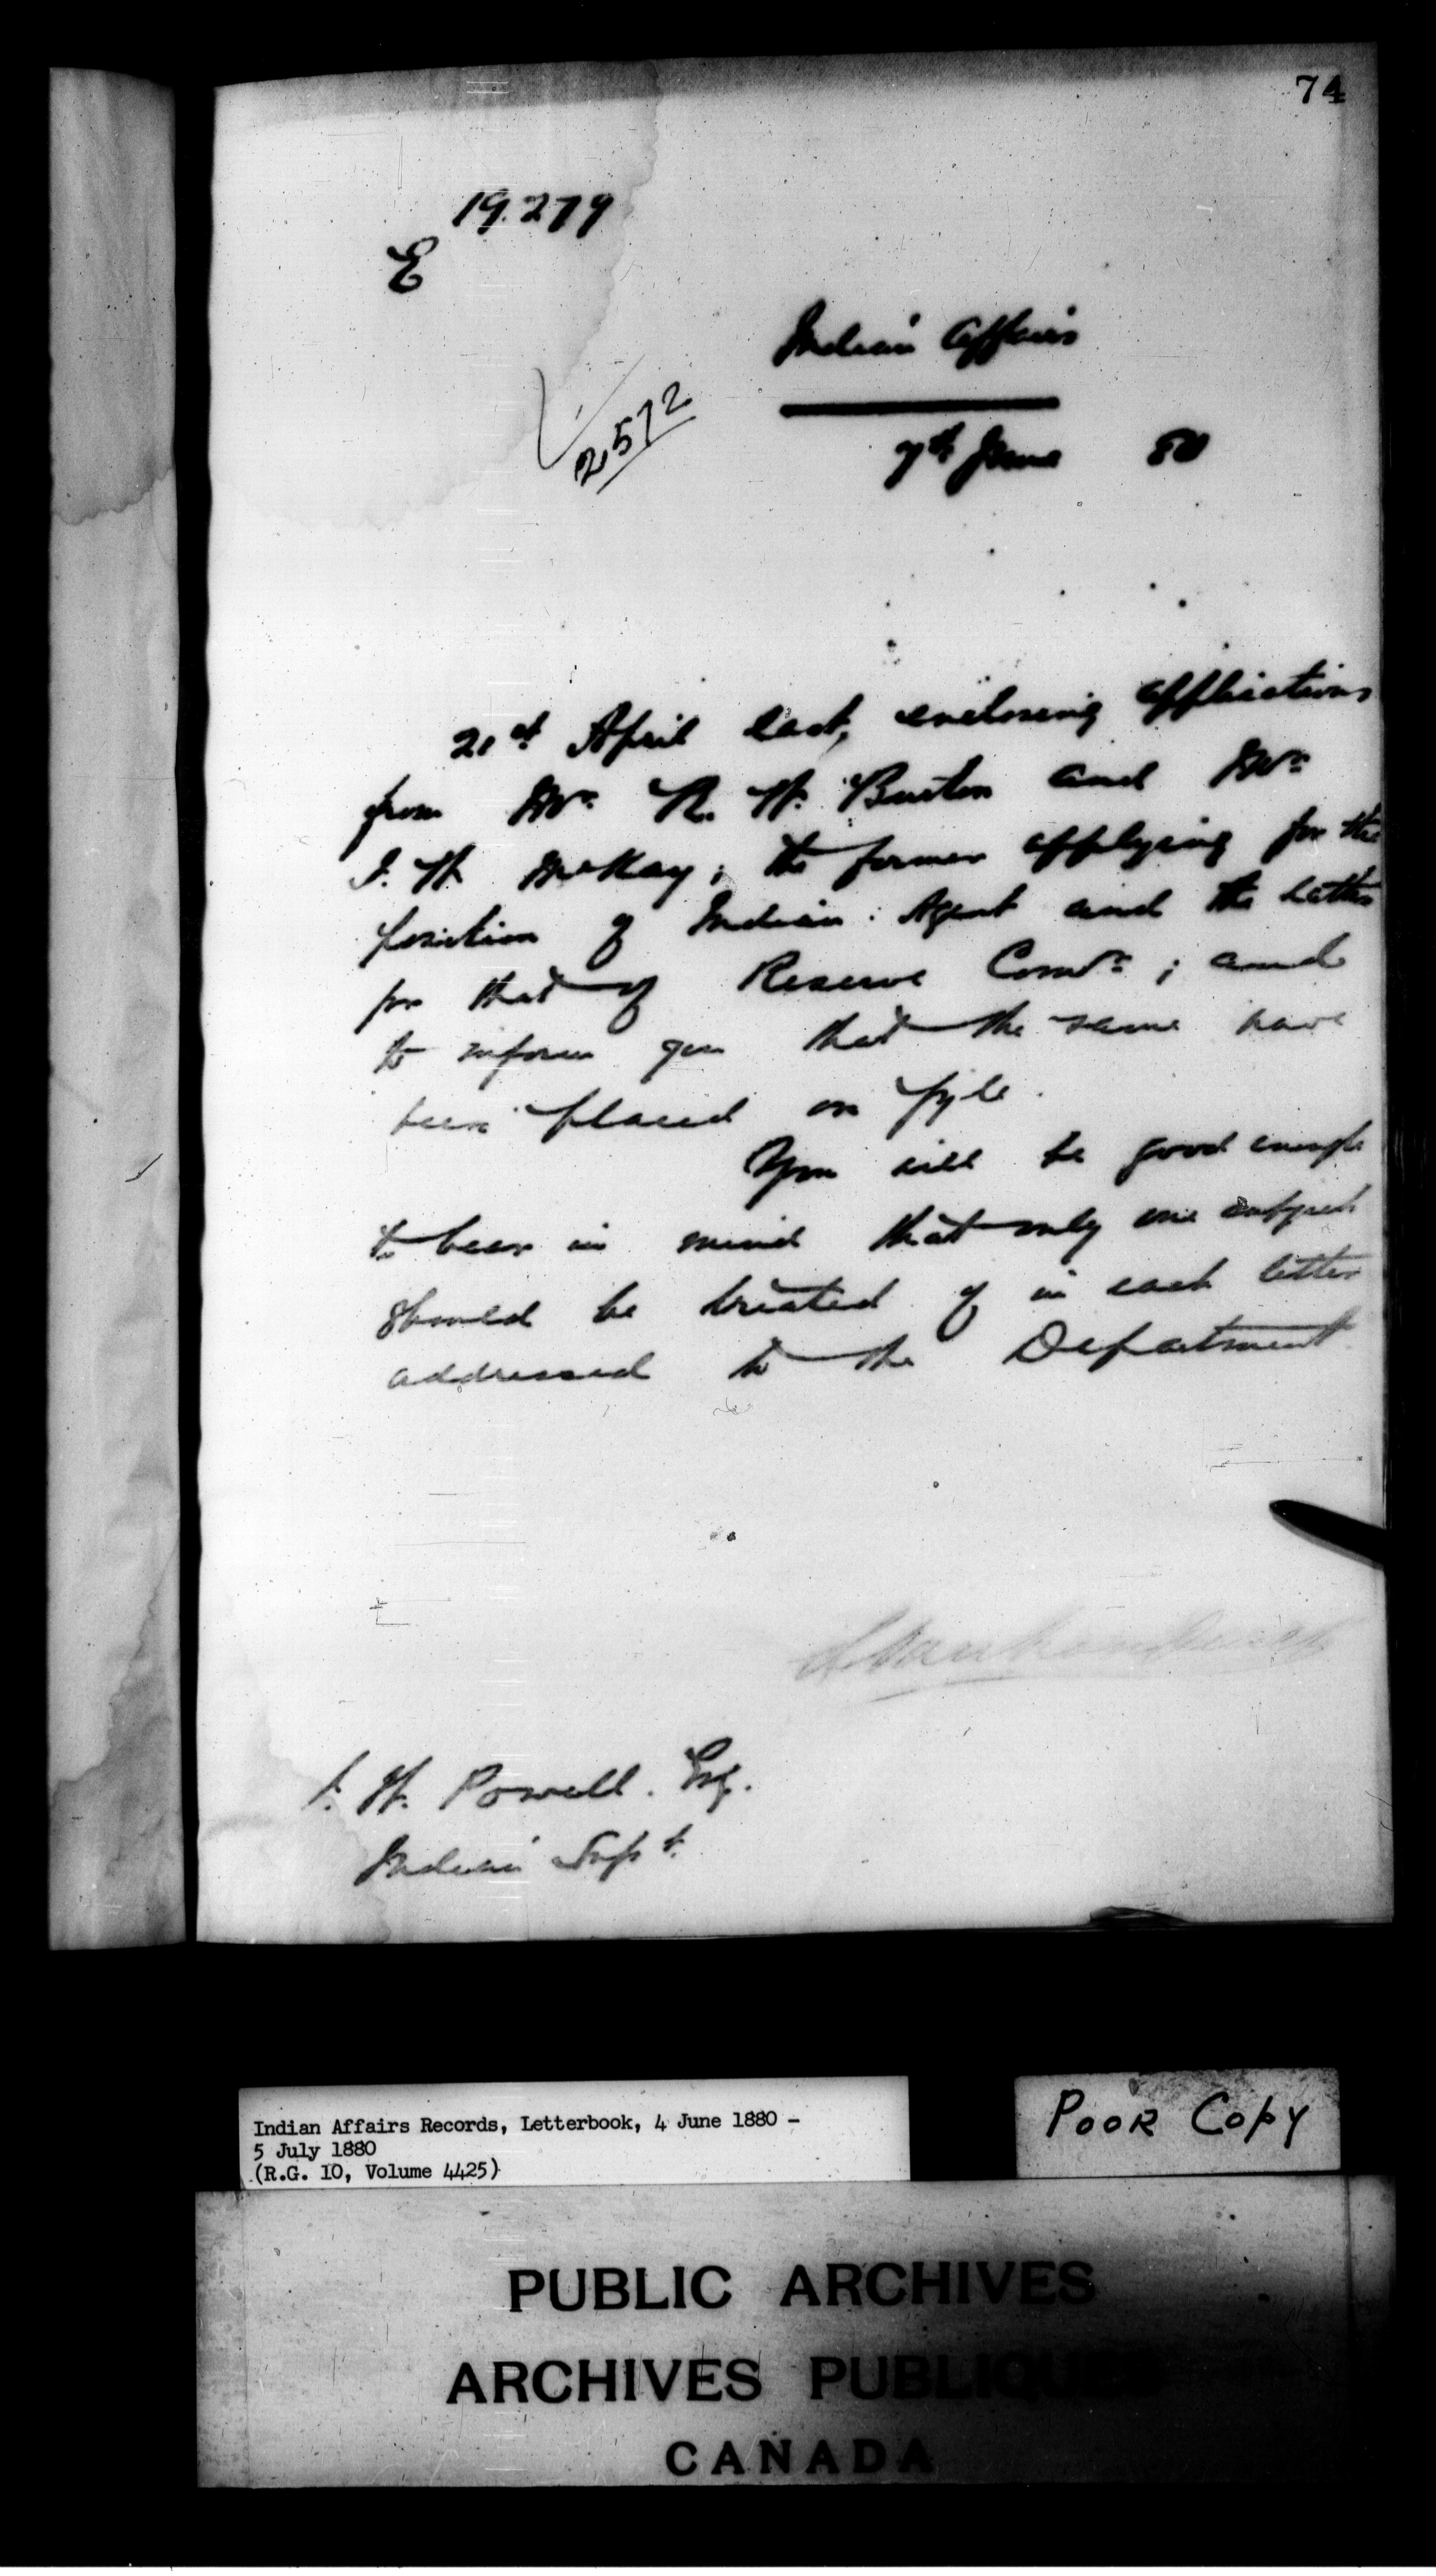 74
19.279
E
Indian Affairs
2572
7th June 80
21st April last, enclosing applications
from Mr. R. H. Burton and Mr.
J. H. McKay; the former applying for the
position of Indian Agent and the latter
for that of Reserve Comr.; and
to inform you that the same have
been placed on fyle.
You will be good enough
to bear in mind that only one subject
should be treated of in each letter
addressed to the Department
L Vankoughnet
I. W. Powell. Esq.
Indian Supt.
Indian Affairs Records, Letterbook, 4 June 1880 -
5 July 1880
(R.G. 10, Volume 4425)
POOR COPY
PUBLIC ARCHIVES
ARCHIVES PUBLIQUES
CANADA